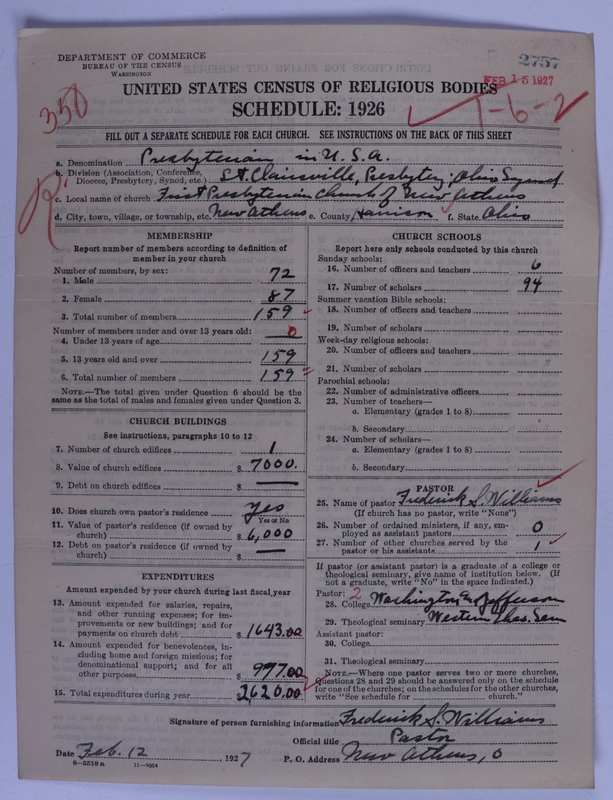 DEPARTMENT OF COMMERCE
BUREAU OF THE CENSUS
WASHINGTON
2757
FEB 15 1927
350
1-6-2
R
UNITED STATES CENSUS OF RELIGIOUS BODIES
SCHEDULE: 1926
FILL OUT A SEPARATE SCHEDULE FOR EACH CHURCH. SEE INSTRUCTIONS ON THE BACK OF THIS SHEET
a. Denomination Presbyterian in U.S.A.
b. Division (Association, Conference, Diocese, Presbytery, Synod, etc.) St. Clairsville, Presbytery, Ohio Synod
c. Local name of church First Presbyterian Church of New Athens
d. City, town, village, or township, etc. New Athens e. County Harrison f. State Ohio
MEMBERSHIP
Report number of members according to definition of
member in your church
Number of members, by sex:
1. Male 72
2. Female 87
3. Total number of members 159
Number of members under and over 13 years old:
4. Under 13 years of age 0
5. 13 years old and over 159
6. Total number of members 159
NOTE.—The total given under Question 6 should be
same as the total of males and females given under Question 3.
CHURCH BUILDINGS
See instructions, paragraphs 10 to 12
7. Number of church edifices 1
8. Value of church edifices $ 7000.
9. Debt on church edifices $ —
10. Does church own pastor's residence yes
Yes or No
11. Value of pastor's residence (if owned by
church) $ 6,000
12. Debt on pastor's residence (if owned by
church) $ —
EXPENDITURES
Amount expended by your church during last fiscal year
13. Amount expended for salaries, repairs,
and other running expenses; for im-
provements or new buildings; and for
payments on church debt $ 1643.00
14. Amount expended for benevolences, in-
cluding home and foreign missions; for
denominational support; and for all
other purposes $ 977.00
15. Total expenditures during year $ 2620.00
CHURCH SCHOOLS
Report here only schools conducted by this church
Sunday schools:
16. Number of officers and teachers 6
17. Number of scholars 94
Summer vacation Bible schools:
18. Number of officers and teachers
19. Number of scholars
Week-day religious schools:
20. Number of officers and teachers
21. Number of scholars
Parochial schools:
22. Number of administrative officers
23. Number of teachers—
a. Elementary (grades 1 to 8)
b. Secondary
24. Number of scholars—
a. Elementary (grades 1 to 8)
b. Secondary
PASTOR
25. Name of pastor Frederick S. Williams
(If church has no pastor, write "None")
26. Number of ordained ministers, if any, em-
ployed as assistant pastors 0
27. Number of other churches served by the
pastor or his assistants 1
If pastor (or assistant pastor) is a graduate of a college or
theological seminary, give name of institution below. (If
not a graduate, write "No" in the space indicated.)
Pastor: 2
28. College Washington & Jefferson
29. Theological seminary Western Theo. Sem
Assistant pastor:
30. College
31. Theological seminary
NOTE.—Where one pastor serves two or more churches,
Questions 28 and 29 should be answered only on the schedule
for one of the churches; on the schedules for the other churches,
write "See schedule for church."
Signature of person furnishing information Frederick S. Williams
Official title Pastor
Date Feb. 12 1927 P. O. Address New Athens, O
8—5518a 11—9054